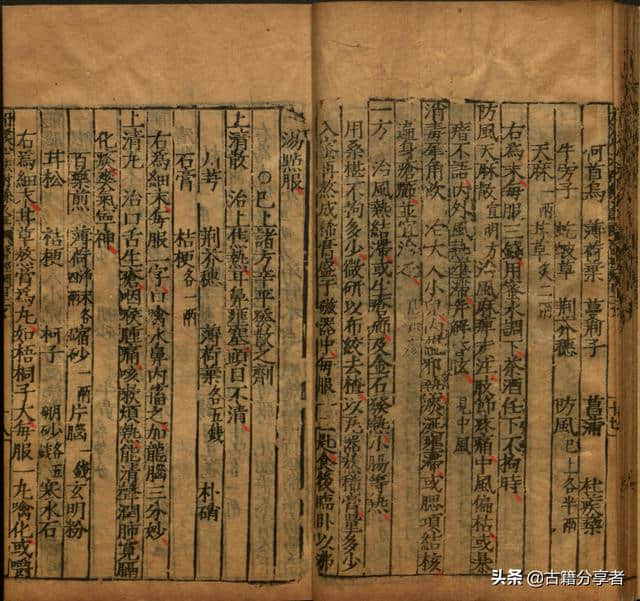 何首烏 薄荷葉 蔓荊子 菖蒲 杜蒺藜
牛旁子 草 荊介穗 防風已上各半兩
天麻一兩 甘草炙二兩
右為末每服三錢用蜜水調下茶酒任下不拘時
防風天麻散 宜明方治風麻痺走注肢節疼痛中風偏枯或暴
瘖不語內外風熱壅滯昏眩 見中風
消毒犀角飲 治大人小兒邪熱痰涎壅滯或腮項結核
遍身瘡癤並宜治之
一方 治風熱結滯或生瘡癤及金石發熱小腸等熱
用桑椹不拘多少微研以布絞去楂以瓦器於稀膏量多少
入蜜再熬成稠膏盛于磁器中每服一二匙食後臨卧以沸
湯點服
○已上諸方辛平發散之劑
上清散 治上焦熱耳鼻壅塞頭目不清
川芎 荊芥穗 薄荷葉各五錢 朴硝
石膏 桔梗各一兩
右為細末每服一字口噙水鼻內搐之加龍腦三分妙
上清丸 治口舌生瘡咽喉腫痛咳嗽煩熱能清聲潤肺寬膈
化痰益氣神
百藥煎 薄荷末各四兩 縮砂一兩 片腦一錢 玄明粉
甘松 桔梗 柯子 硼砂各五錢 寒水石
右為細末甘草熬膏為丸如梧桐子大每服一丸噙化或嚼
头条 @古籍分享者